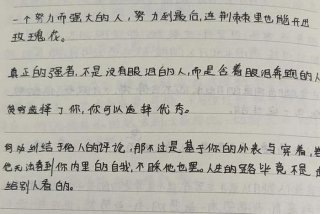 一个努力而强大的人,努力到最后,连荆棘里也能开出
玫瑰花。
真正的强者,不是没有眼泪的人,而是含着眼泪奔跑的人
贫穷选择了你,你可以选择优秀。
何必纠结于他人的评论,那不过是基于你的外表与穿着,
他无法看到你内里的自我,不睬他也罢。人生的路毕竟不是走
给别人看的。